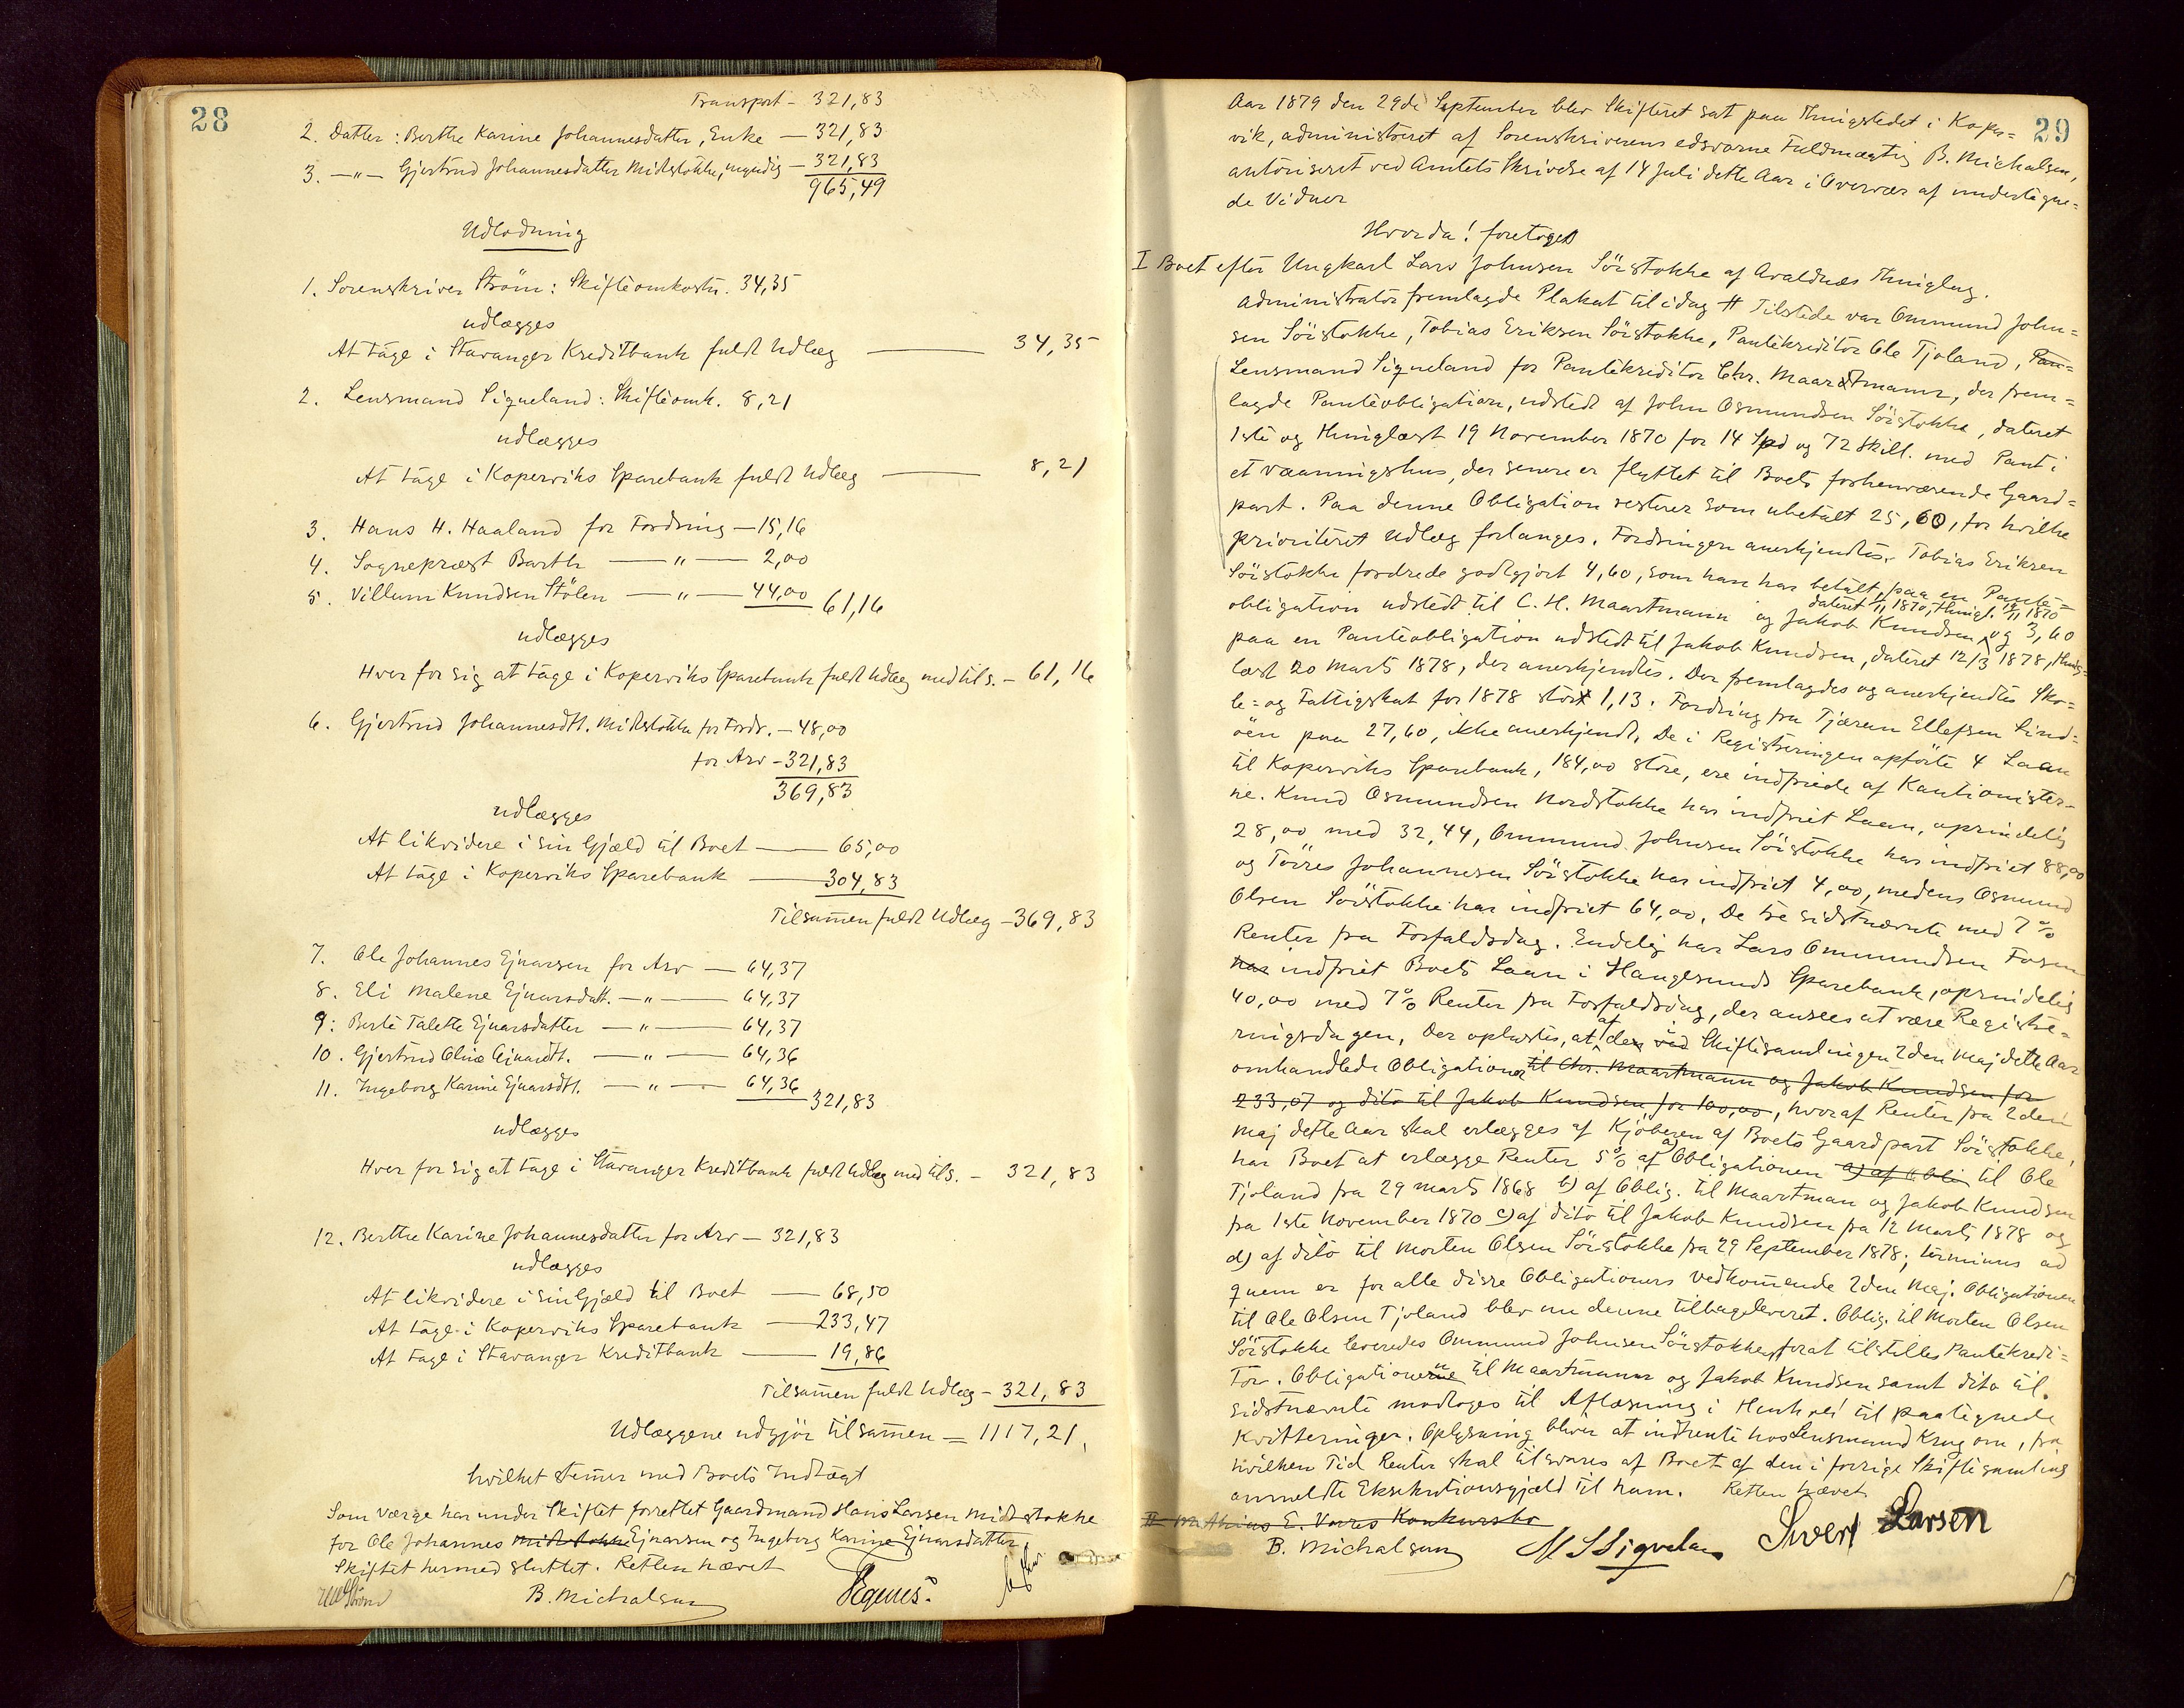 28
Transport - 321,83
2. Datter: Berthe Karine Johannesdatter, Enke — 321,83
3. —"— Gjertrud Johannesdatter Midtstokke, myndig — 321,83
965,49
Udlodning
1. Sorenskriver Ström: Skifteomkostn. 34,35
udlægges
At tage i Stavanger Kreditbank fuldt Udlæg — 34,35
2. Lensmand Sigueland: Skifteomk. 8,21
udlægges
At tage i Koperviks Sparebank fuldt Udlæg — 8,21
3. Hans H. Haaland for Fordring — 15,16
4. Sognepræst Barth —"— 2,00
5. Villum Knudsen Stölen —"— 44,00 61,16
udlægges
Hver for sig at tage i Koperviks Sparebank fuldt Udlæg med tils. - 61,16
6. Gjertrud Johannesdtt. Midtstokke for Fordr. - 48,00
for Arv - 321,83
369,83
udlægges
At likvidere i sin Gjæld til Boet — 65,00
At tage i Koperviks Sparebank — 304,83
Tilsammen fuldt Udlæg - 369,83
7. Ole Johannes Ejnarsen for Arv — 64,37
8. Eli Malene Ejnarsdatt. —"— 64,37
9. Berte Talette Ejnarsdatter —"— 64,37
10. Gjertrud Oline Ejnarsdtt. —"— 64,36
11. Ingeborg Karine Ejnarsdtt. —"— 64,36 321,83
udlægges
Hver for sig at tage i Stavanger Kreditbank fuldt Udlæg med tils. - 321,83
12. Berthe Karine Johannesdatter for Arv - 321,83
udlægges
At likvidere i sin Gjæld til Boet — 68,50
At tage i Koperviks Sparebank — 233,47
At tage i Stavanger Kreditbank — 19,86
Tilsammen fuldt Udlæg - 321,83
Udlæggene udgjör tilsammen = 1117,21,
hvilket stemmer med Boets Indtægt
Som Værge har under Skiftet forrettet Gaardmand Hans Larsen Midtstokke
for Ole Johannes Midtstokke Ejnarsen og Ingeborg Karine Ejnarsdatter
Skiftet hermed sluttet. Retten hævet
B. Michalsen
29
Aar 1879 den 29de September blev Skifteret sat paa Thingstedet i Koper=
vik, administreret af Sorenskriverens edsvorne Fuldmægtig B. Michalsen,
autoriseret ved Amtets Skrivelse af 14 Juli dette Aar i Overvær af undertegne=
de Vidner
Hvorda! foretoges
I Boet efter Ungkarl Lars Johnsen Sörstokke af Avaldsnes Thinglag.
Administrator fremlagde Plakat til idag # Tilstede var Ommund John=
sen Sörstokke, Tobias Eriksen Sörstokke, Pantekreditor Ole Tjoland, Pan=
Lensmand Sigueland for Pantekreditor Chr. Maartmann, der frem=
lagde Panteobligation, udstedt af John Osmundsen Sörstokke, dateret
1ste og thinglæst 19 November 1870 for 14 Spd og 72 Skill. med Pant i
et Vaaningshus, der senere er flyttet til Boets forhenværende Gaard=
part. Paa denne Obligation resterer som ubetalt 25,60, for hvilke
prioriteret Udlæg forlanges. Fordringen anerkjendtes. Tobias Eriksen
Sörstokke fordrede godtgjort 4,60, som han har betalt paa en Pante=
dateret 1/11 1870, thingl. 19/11 1870
obligation udstedt til C. H. Maartmann og Jakob Knudsen, og 3,60
paa en Panteobligation udstedt til Jakob Knudsen, dateret 12/3 1878, thing=
læst 20 Marts 1878, der anerkjendtes. Der fremlagdes og anerkjendtes Sko=
le= og Fattigskat for 1878 stort 1,13. Fordring fra Tjæran Ellefsen Lind=
öen paa 27,60, ikke anerkjendt. De i Registreringen opförte 4 Laan
til Koperviks Sparebank, 184,00 store, ere indfriede af Kautionister=
ne. Knud Osmundsen Nordstokke har indfriet Laan, oprindelig
28,00 med 32,44, Ommund Johnsen Sörstokke har indfriet 88,00
og Törres Johannesen Sörstokke har indfriet 4,00, medens Osmund
Olsen Sörstokke har indfriet 64,00. De tre sidstnævnte med 7%
Renter fra Forfaldsdag. Endelig har Lars Ommundsen Fosen
har indfriet Boets Laan i Haugesunds Sparebank, oprindelig
40,00 med 7% Renter fra Forfaldsdag, der ansees at være Registre=
ringsdagen. Der oplystes, at af den ved i Skiftesamlingen 2den Maj dette Aar
omhandlede Obligationer til Chr. Maartmann og Jakob Knudsen for
233,07 og dito til Jakob Knudsen for 100,00, hvoraf Renter fra 2den
Maj dette Aar skal erlægges af Kjöberen af Boets Gaardpart Sörstokke,
har Boet at erlægge Renter 5% a) af Obligationen a) af Obli til Ole
Tjoland fra 29 Marts 1868 b) af Oblig. til Maartman og Jakob Knudsen
fra 1ste November 1870 c) af dito til Jakob Knudsen fra 12 Marts 1878 og
d) af dito til Morten Olsen Sörstokke fra 29 September 1878; terminus ad
quem er for alle disse Obligationers Vedkommende 2den Maj. Obligationen
til Ole Olsen Tjoland blev nu denne tilbageleveret. Oblig. til Morten Olsen
Sörstokke leveredes Ommund Johnsen Sörstokke forat tilstilles Pantekredi=
tor. Obligationerne til Maartmann og Jakob Knudsen samt dito til
sidstnævnte modtoges til Aflæsning i Henhold til paategnede
Kvitteringer. Oplysning bliver at indhente hos Lensmand Krag om, fra
hvilken Tid Renter skal tilsvares af Boet af den i forrige Skiftesamling
anmeldte Eksekutionsgjæld til ham. Retten hævet
II Mathias E. Vorres Konkursbo
B. Michalsen M S Sigueland Sivert Larsen